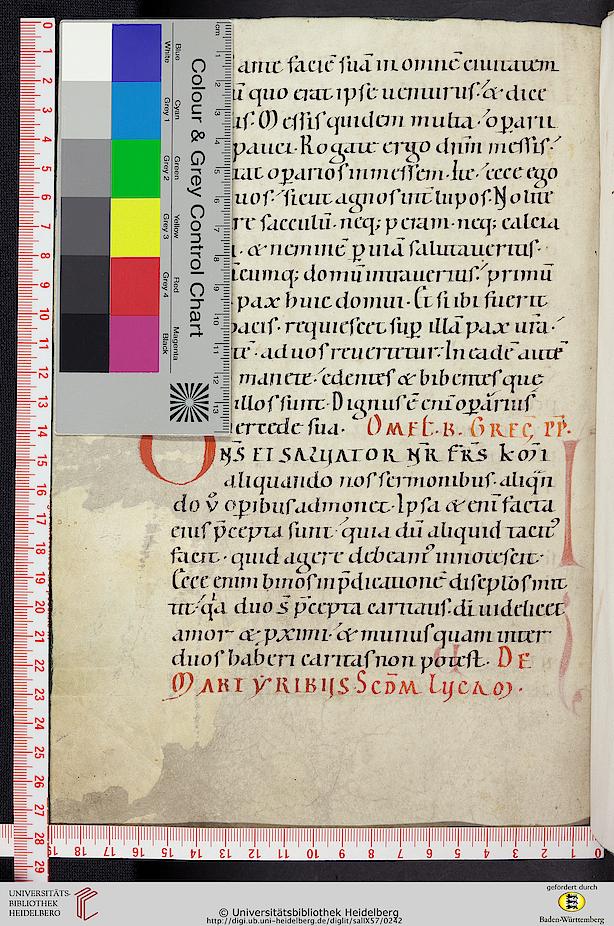 ante faciē suā in omnē civitatem
ū quo erat ipse venturus· & dice
is· Messis quidem multa· oparii
pauci· Rogate ergo dn̄m messis·
tat oparios in messem· Ite· ecce ego
vos· sicut agnos int̄ lupos· Nolite
re sacculū· neq; peram· neq; calcia
· & neminē p viā salutaveritis·
cumq; domū intraveritis· primū
pax huic domui· Et si ibi fuerit
pacis· requiescet sup illā pax vr̄a·
tē· ad vos revertetur· In eadē autē
manete· edentes & bibentes que
illos sunt· Dignus ē eni oparius
ercede sua· OMEL· B· GREG PP·
DN̄S ET SALVATOR NR̄ FRS̄ k̄mi
aliquando nos sermonibus· aliqn̄
do v̊ opibus admonet· Ipsa & eni facta
eius p̄cepta sunt· quia dū aliquid tacit᾽
facit· quid agere debeam᾽ innotescit·
Ecce enim binos in p̄dicationē discip̄los mit
tit· q̇a duo s̄ p̄cepta caritatis· dī videlicet
amor & pximi· & minus quam inter
duos haberi caritas non potest· DE
MARTYRIBUS· SCDM LUCAM·
Colour & Grey Control Chart
Blue Cyan Green Yellow Red Magenta
White Grey 1 Grey 2 Grey 3 Grey 4 Black
cm 1 2 3 4 5 6 7 8 9 10 11 12 13
0 1 2 3 4 5 6 7 8 9 10 11 12 13 14 15 16 17 18 19 20 21 22 23 24 25 26 27 28 29
19 18 17 16 15 14 13 12 11 10 9 8 7 6 5 4 3 2 1 0
UNIVERSITÄTS-
BIBLIOTHEK
HEIDELBERG
© Universitätsbibliothek Heidelberg
http://digi.ub.uni-heidelberg.de/diglit/salIX57/0242
gefördert durch
Baden-Württemberg